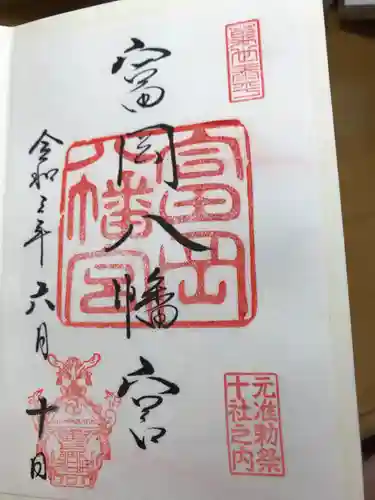 富岡八幡宮
富岡
八幡宮
元准勅祭
十社之内
令和三年六月十日